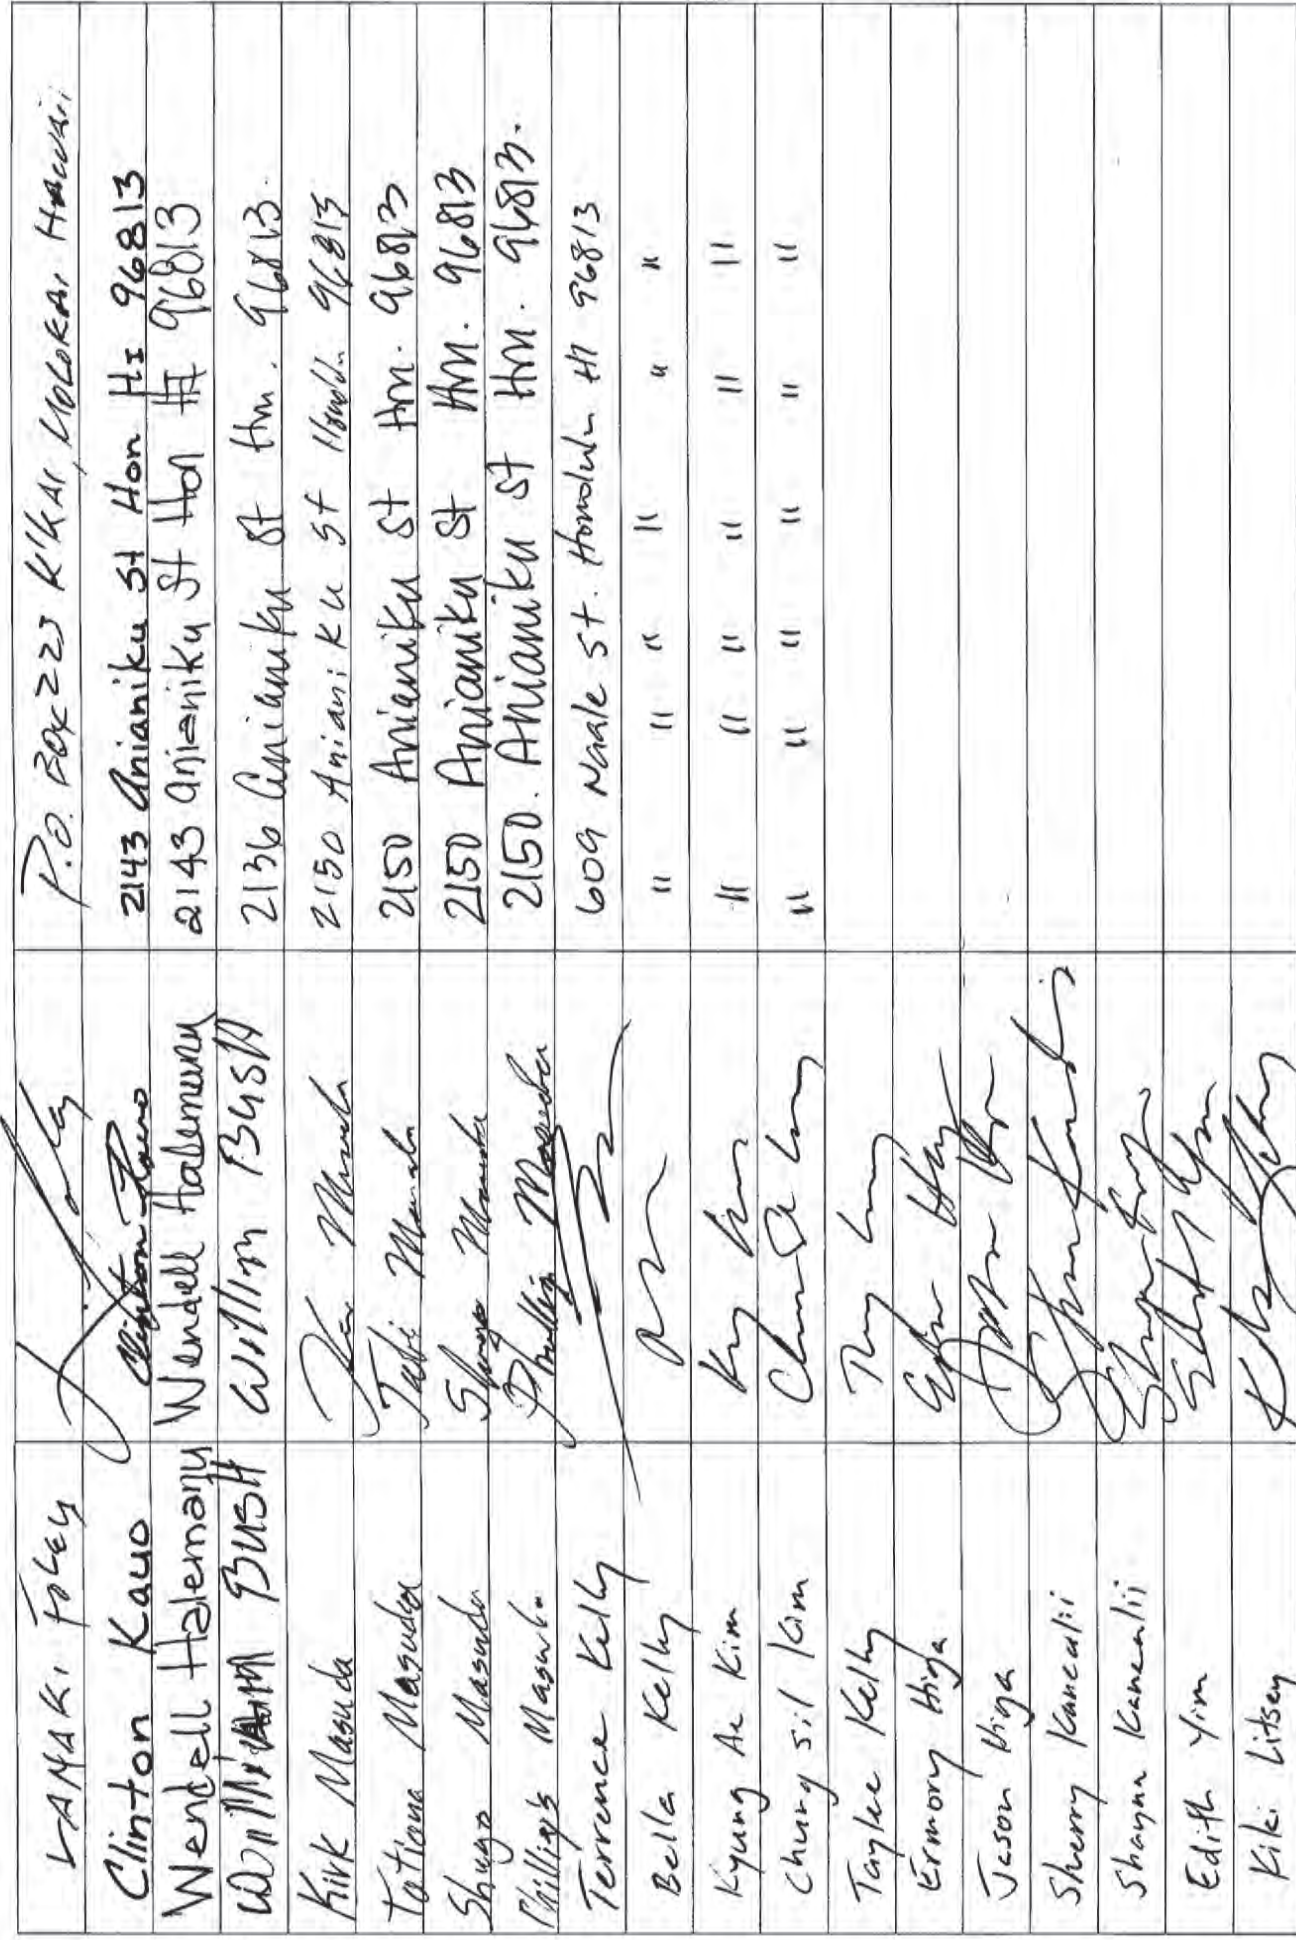 LAMAKi Foley P.O. Box 223 K'KAI, MOLOKAI HAWAII
Clinton Kauo Clinton Kauo 2143 Anianiku St Hon HI 96813
Wendell Halemanu Wendell Halemanu 2143 anianiku St Hon HI 96813
William BUSH William BUSH 2136 Anianiku St Hon. 96813.
Kirk Masuda 2150 Anianiku St Honolulu 96813
Tatiana Masuda Tati Masuda 2150 Anianiku St Hon. 96813
Shugo Masuda Shugo Masuda 2150 Anianiku St Hon. 96813
Phillip Masuda Phillip Masuda 2150. Anianiku St Hon. 96813.
Terrence Kelly 609 Naale St. Honolulu HI 96813
Bella Kelly " " " " " "
Kyung Ae Kim Kyung Kim " " " " " "
Chung sil Kim " " " " " "
Taylee Kelly
Ermory Higa
Jason Higa
Sherry Kanealii
Shayna Kanealii
Edith Yim
Kiki Litsey